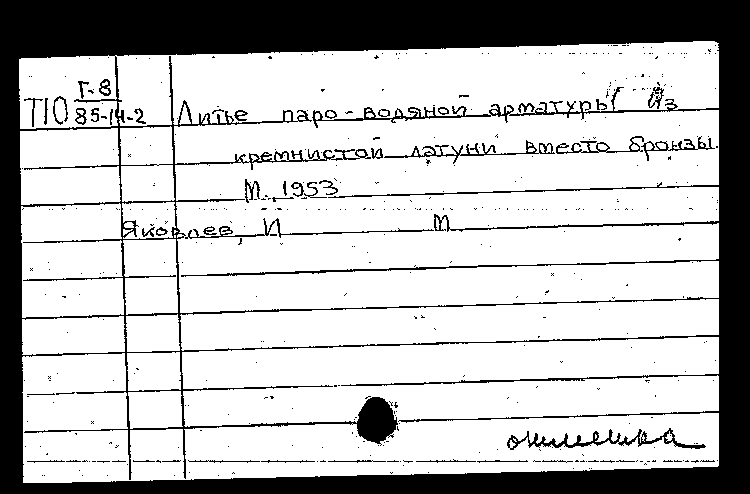 Г-8
Т10 85-14-2 Литье паро-водяной арматуры из
кремнистой латуни вместо бронзы.
М., 1953
Яковлев, И М